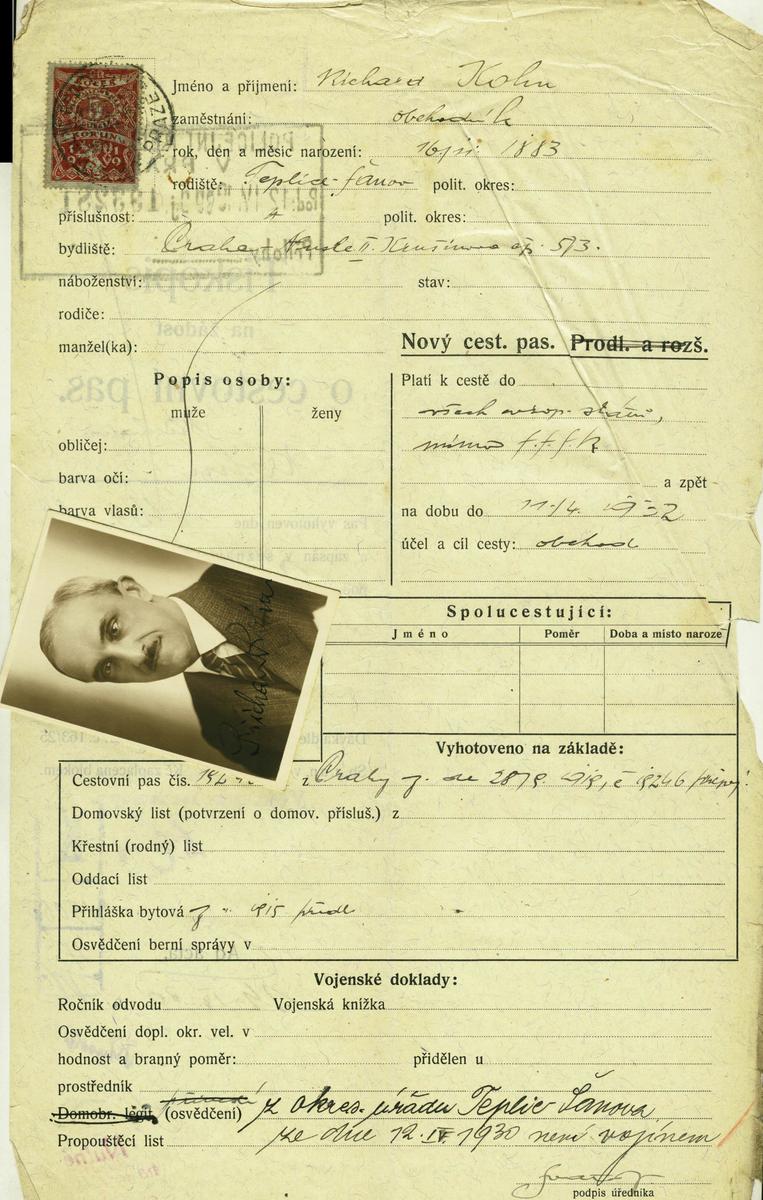 Jméno a příjmení: Richard Kohn
zaměstnání: obchodník
rok, den a měsíc narození: 16/II. 1883
rodiště: Teplic-Šanov polit. okres:
příslušnost: polit. okres:
bydliště: Praha - Nusle II. čp. 573.
náboženství: stav:
rodiče:
manžel(ka):
Nový cest. pas. Prodl. a rozš.
Popis osoby:
muže ženy
obličej:
barva očí:
barva vlasů:
Platí k cestě do
všech evrop. států,
mimo
a zpět
na dobu do 11/4. 1932
účel a cíl cesty: obchod
Spolucestující:
Jméno Poměr Doba a místo naroze
Vyhotoveno na základě:
Cestovní pas čís. z Prahy
Domovský list (potvrzení o domov. přísluš.) z
Křestní (rodný) list
Oddací list
Přihláška bytová
Osvědčení berní správy v
Vojenské doklady:
Ročník odvodu Vojenská knížka
Osvědčení dopl. okr. vel. v
hodnost a branný poměr: přidělen u
prostředník
Domobr. legit. (osvědčení) z okres. úřadu Teplic-Šanova
Propouštěcí list ze dne 12. IV. 1930 není vojínem
podpis úředníka